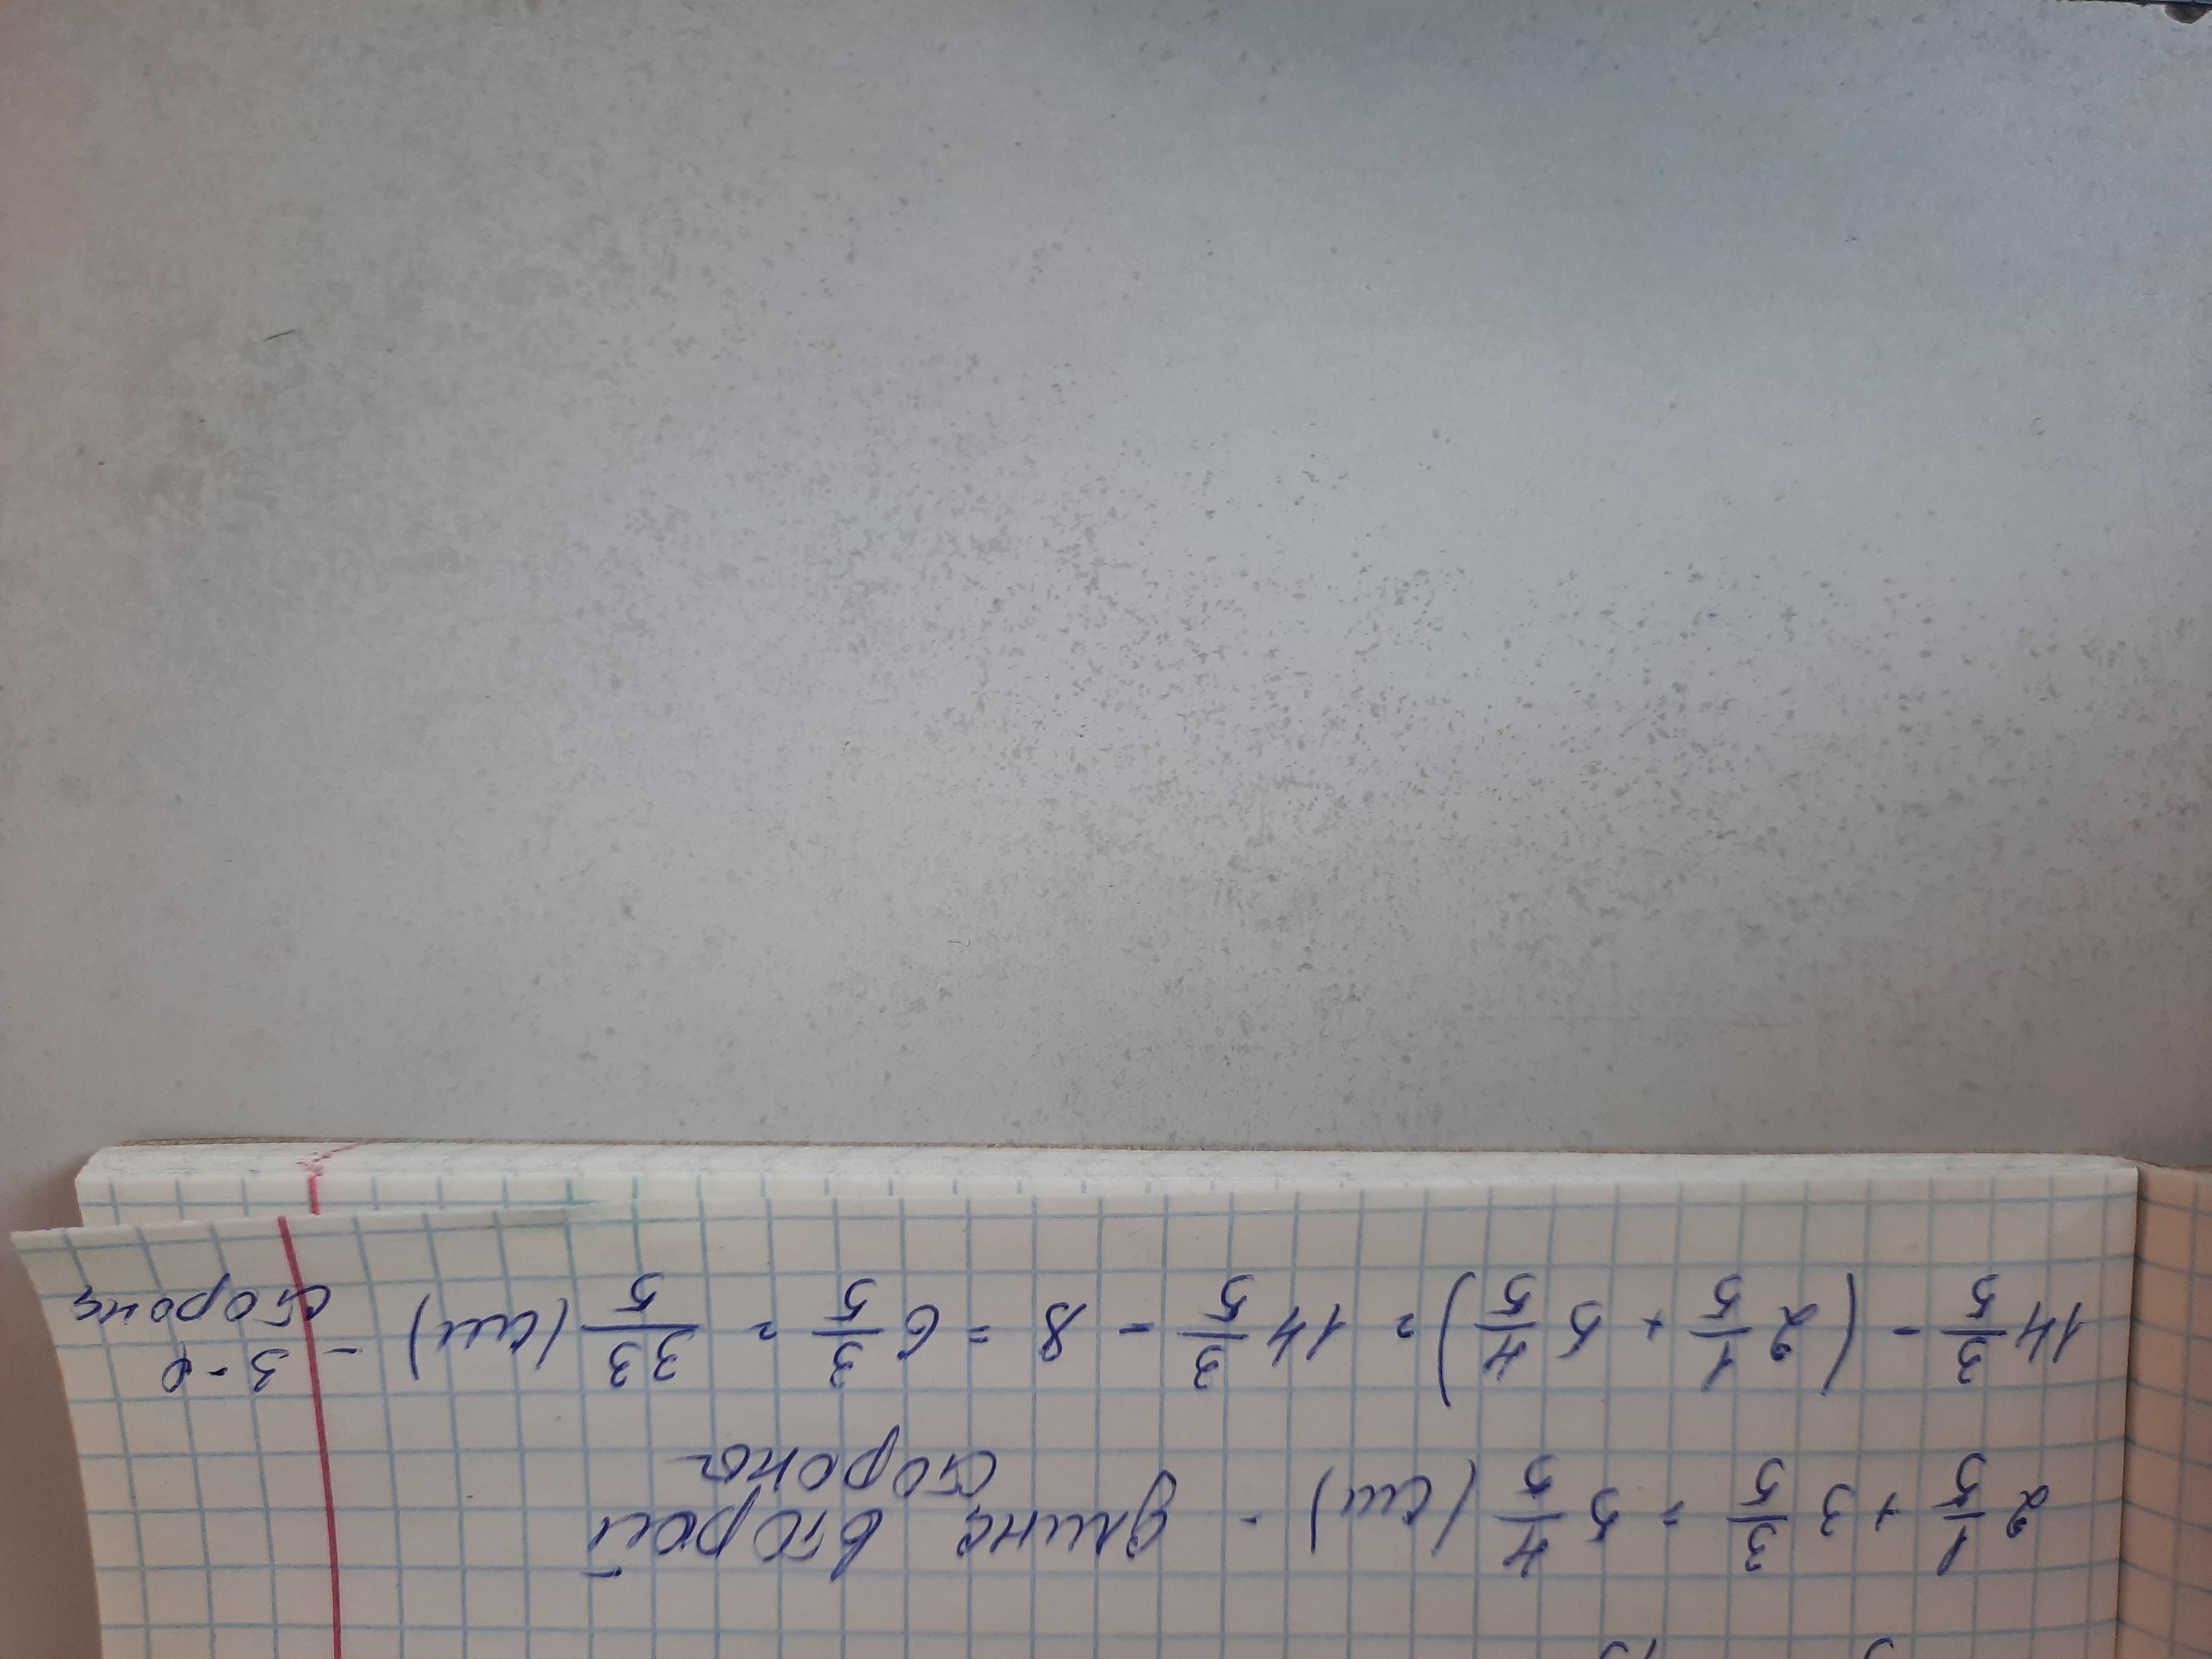 2 1/5 + 3 3/5 = 5 4/5 (см) - длина второй
сторона
14 3/5 - (2 1/5 + 5 4/5) = 14 3/5 - 8 = 6 3/5 = 33/5 (см) - 3-я
сторона